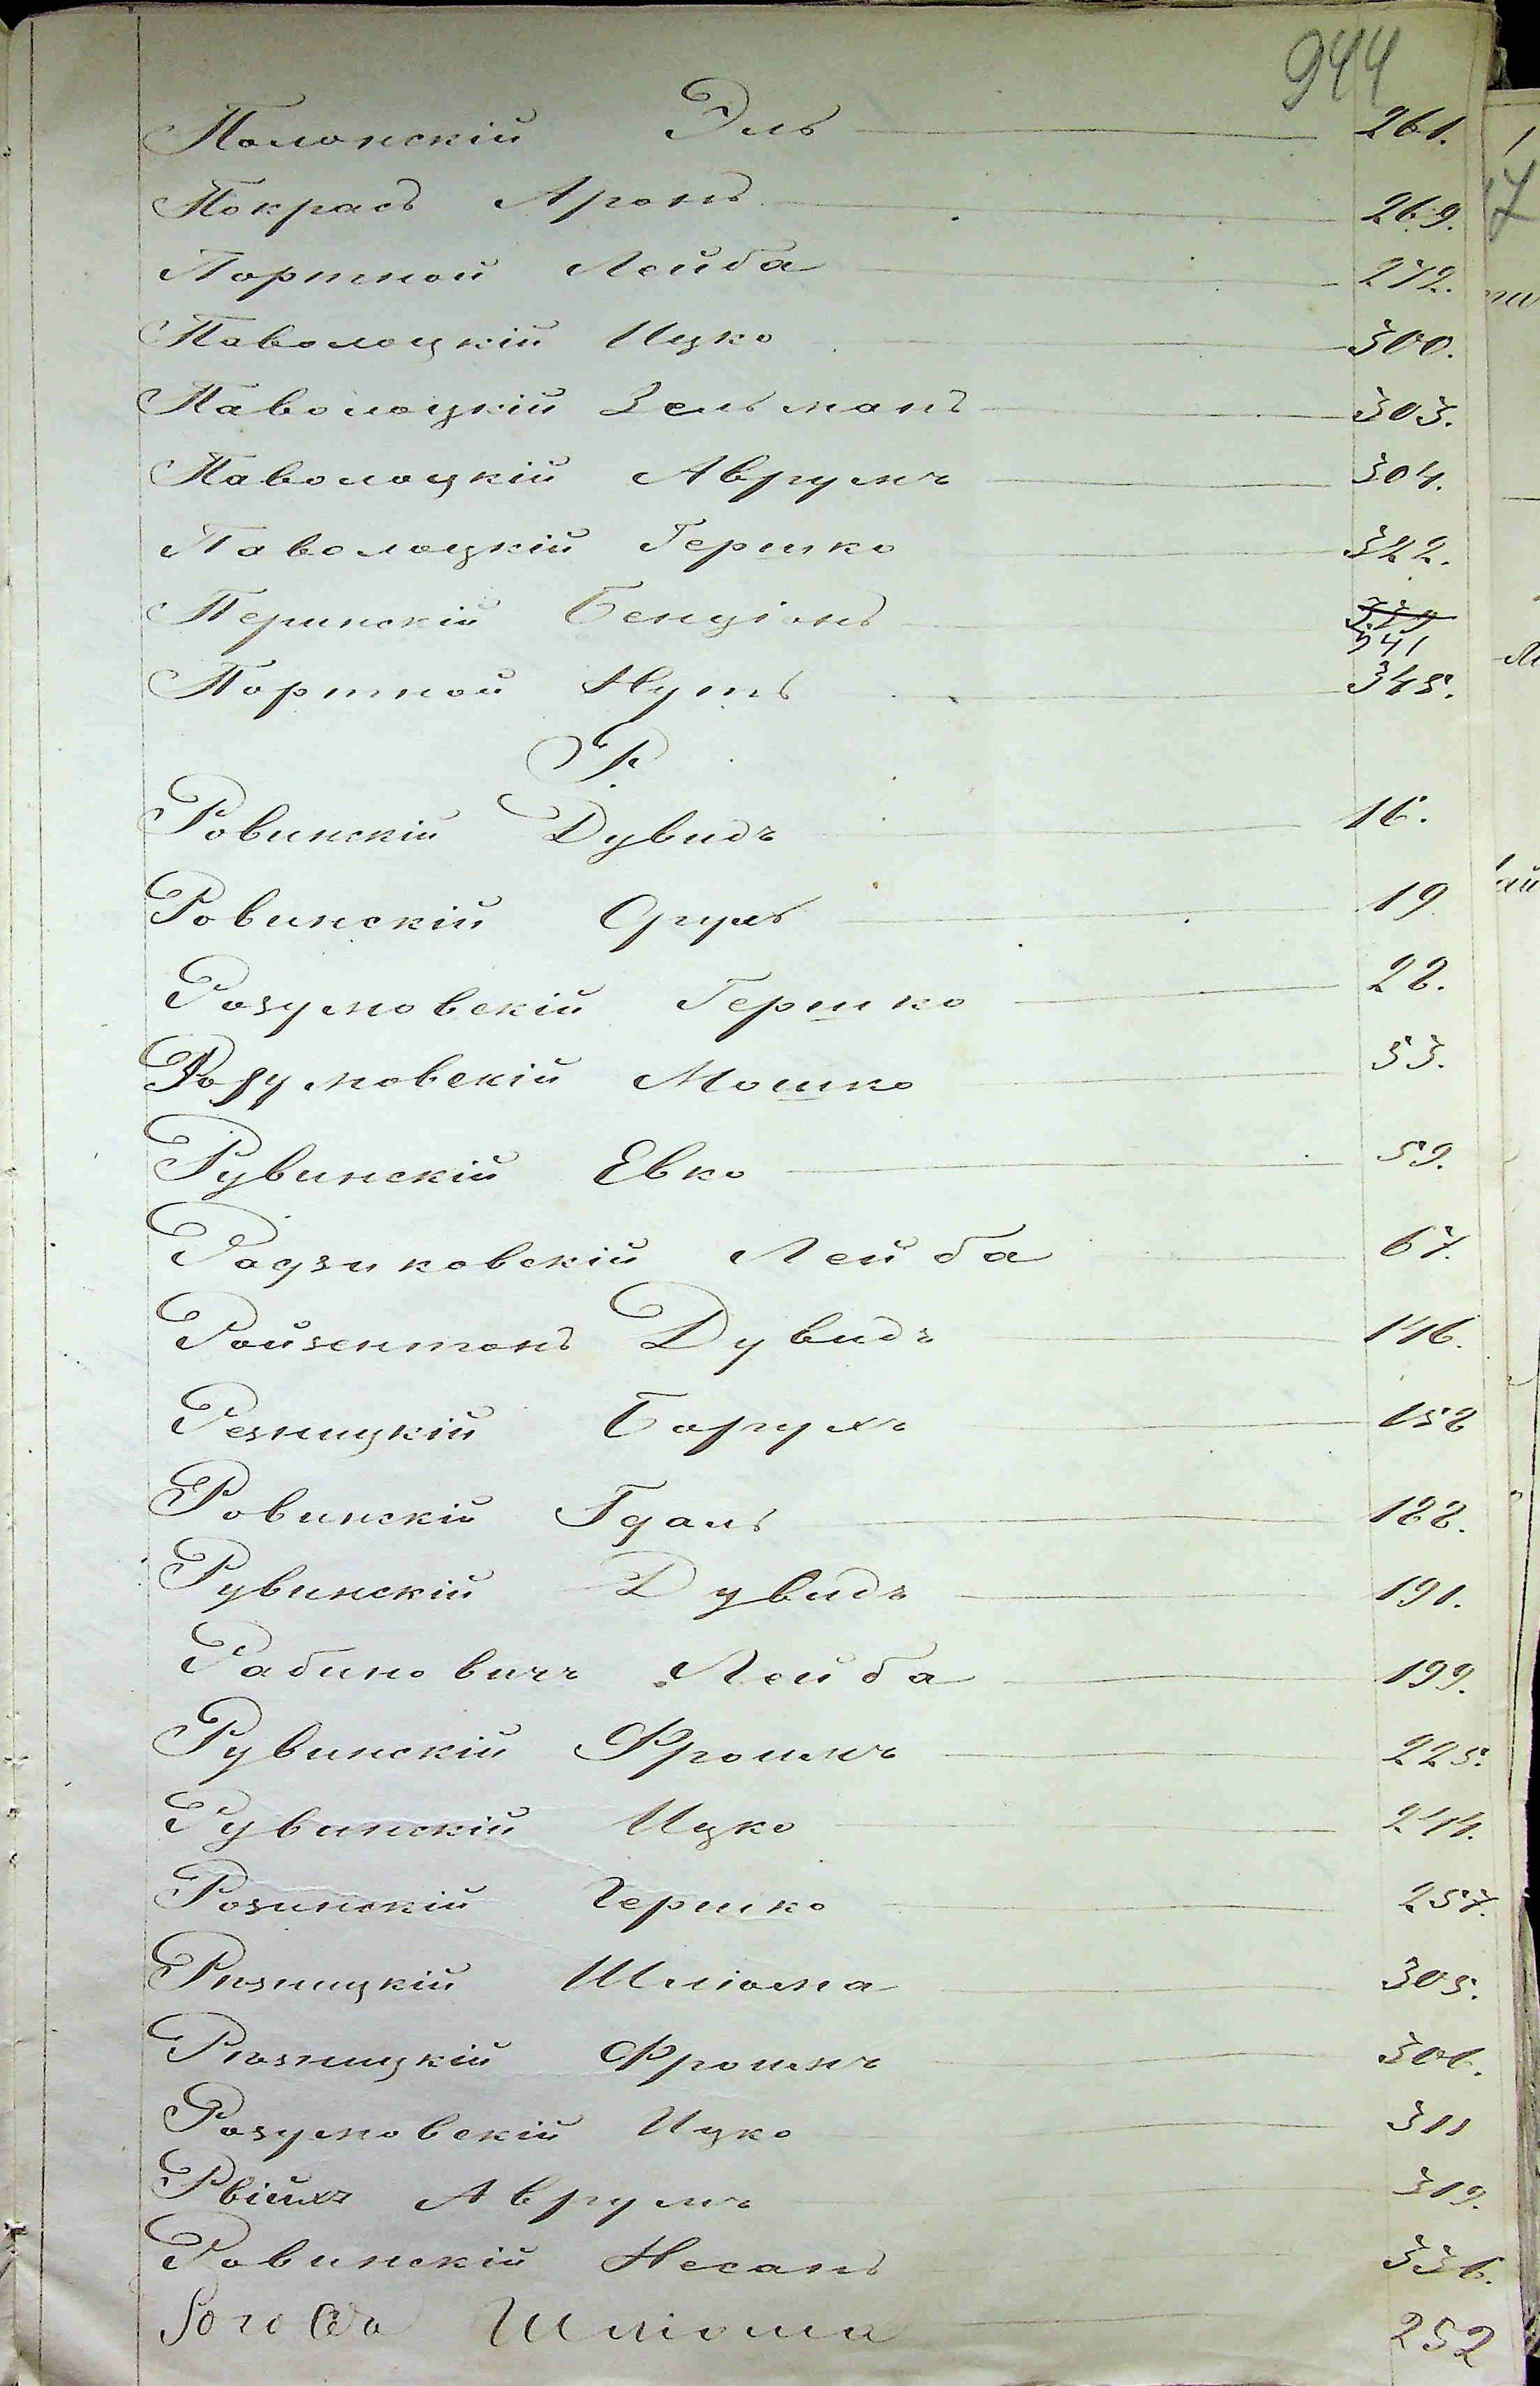 944
Полонскій Эль 261.
Покрасъ Аронъ 269.
Портной Лейба 272.
Паволоцкій Ицко 300.
Паволоцкій Зельманъ 303.
Паволоцкій Аврумъ 304.
Паволоцкій Гершко 322.
Перинскій Бенціонъ 339
341
Портной Нутъ 345.
Р.
Ровинскій Дувидъ 16.
Ровинскій Сруль 19
Розумовскій Гершко 28.
Розумовскій Мошко 53.
Рувинскій Евко 59.
Радзиковскій Лейба 67.
Ройзенманъ Дувидъ 146.
Резницкій Борухъ 158
Ровинскій Гдаль 188.
Рувинскій Дувидъ 191.
Рабиновичъ Лейба 199.
Рувинскій Фроимъ 225.
Рувинскій Ицко 244.
Розинскій Гершко 257.
Рѣзницкій Шліома 305.
Рѣзницкій Фроимъ 306.
Розумовскій Ицко 311
Аврумъ 319.
Ровинскій Несанъ 336.
Шліома 252